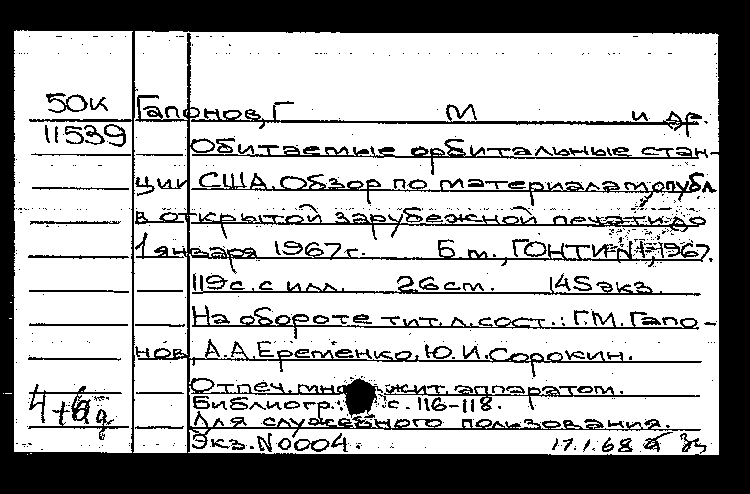 50к Гапонов, Г М и др.
11539
Обитаемые орбитальные стан-
ции США. Обзор по материалам, опубл
в открытой зарубежной печати до
1 января 1967г. Б.м., ГОНТИ-N1, 1967.
119с. с илл. 26см. 145экз.
На обороте тит. л. сост.: Г.М. Гапо-
нов, А.А. Еременко, Ю.И. Сорокин.
Отпеч. множит. аппаратом.
Библиогр.: с. 116-118.
Для служебного пользования.
Экз. N0004. 17.1.68